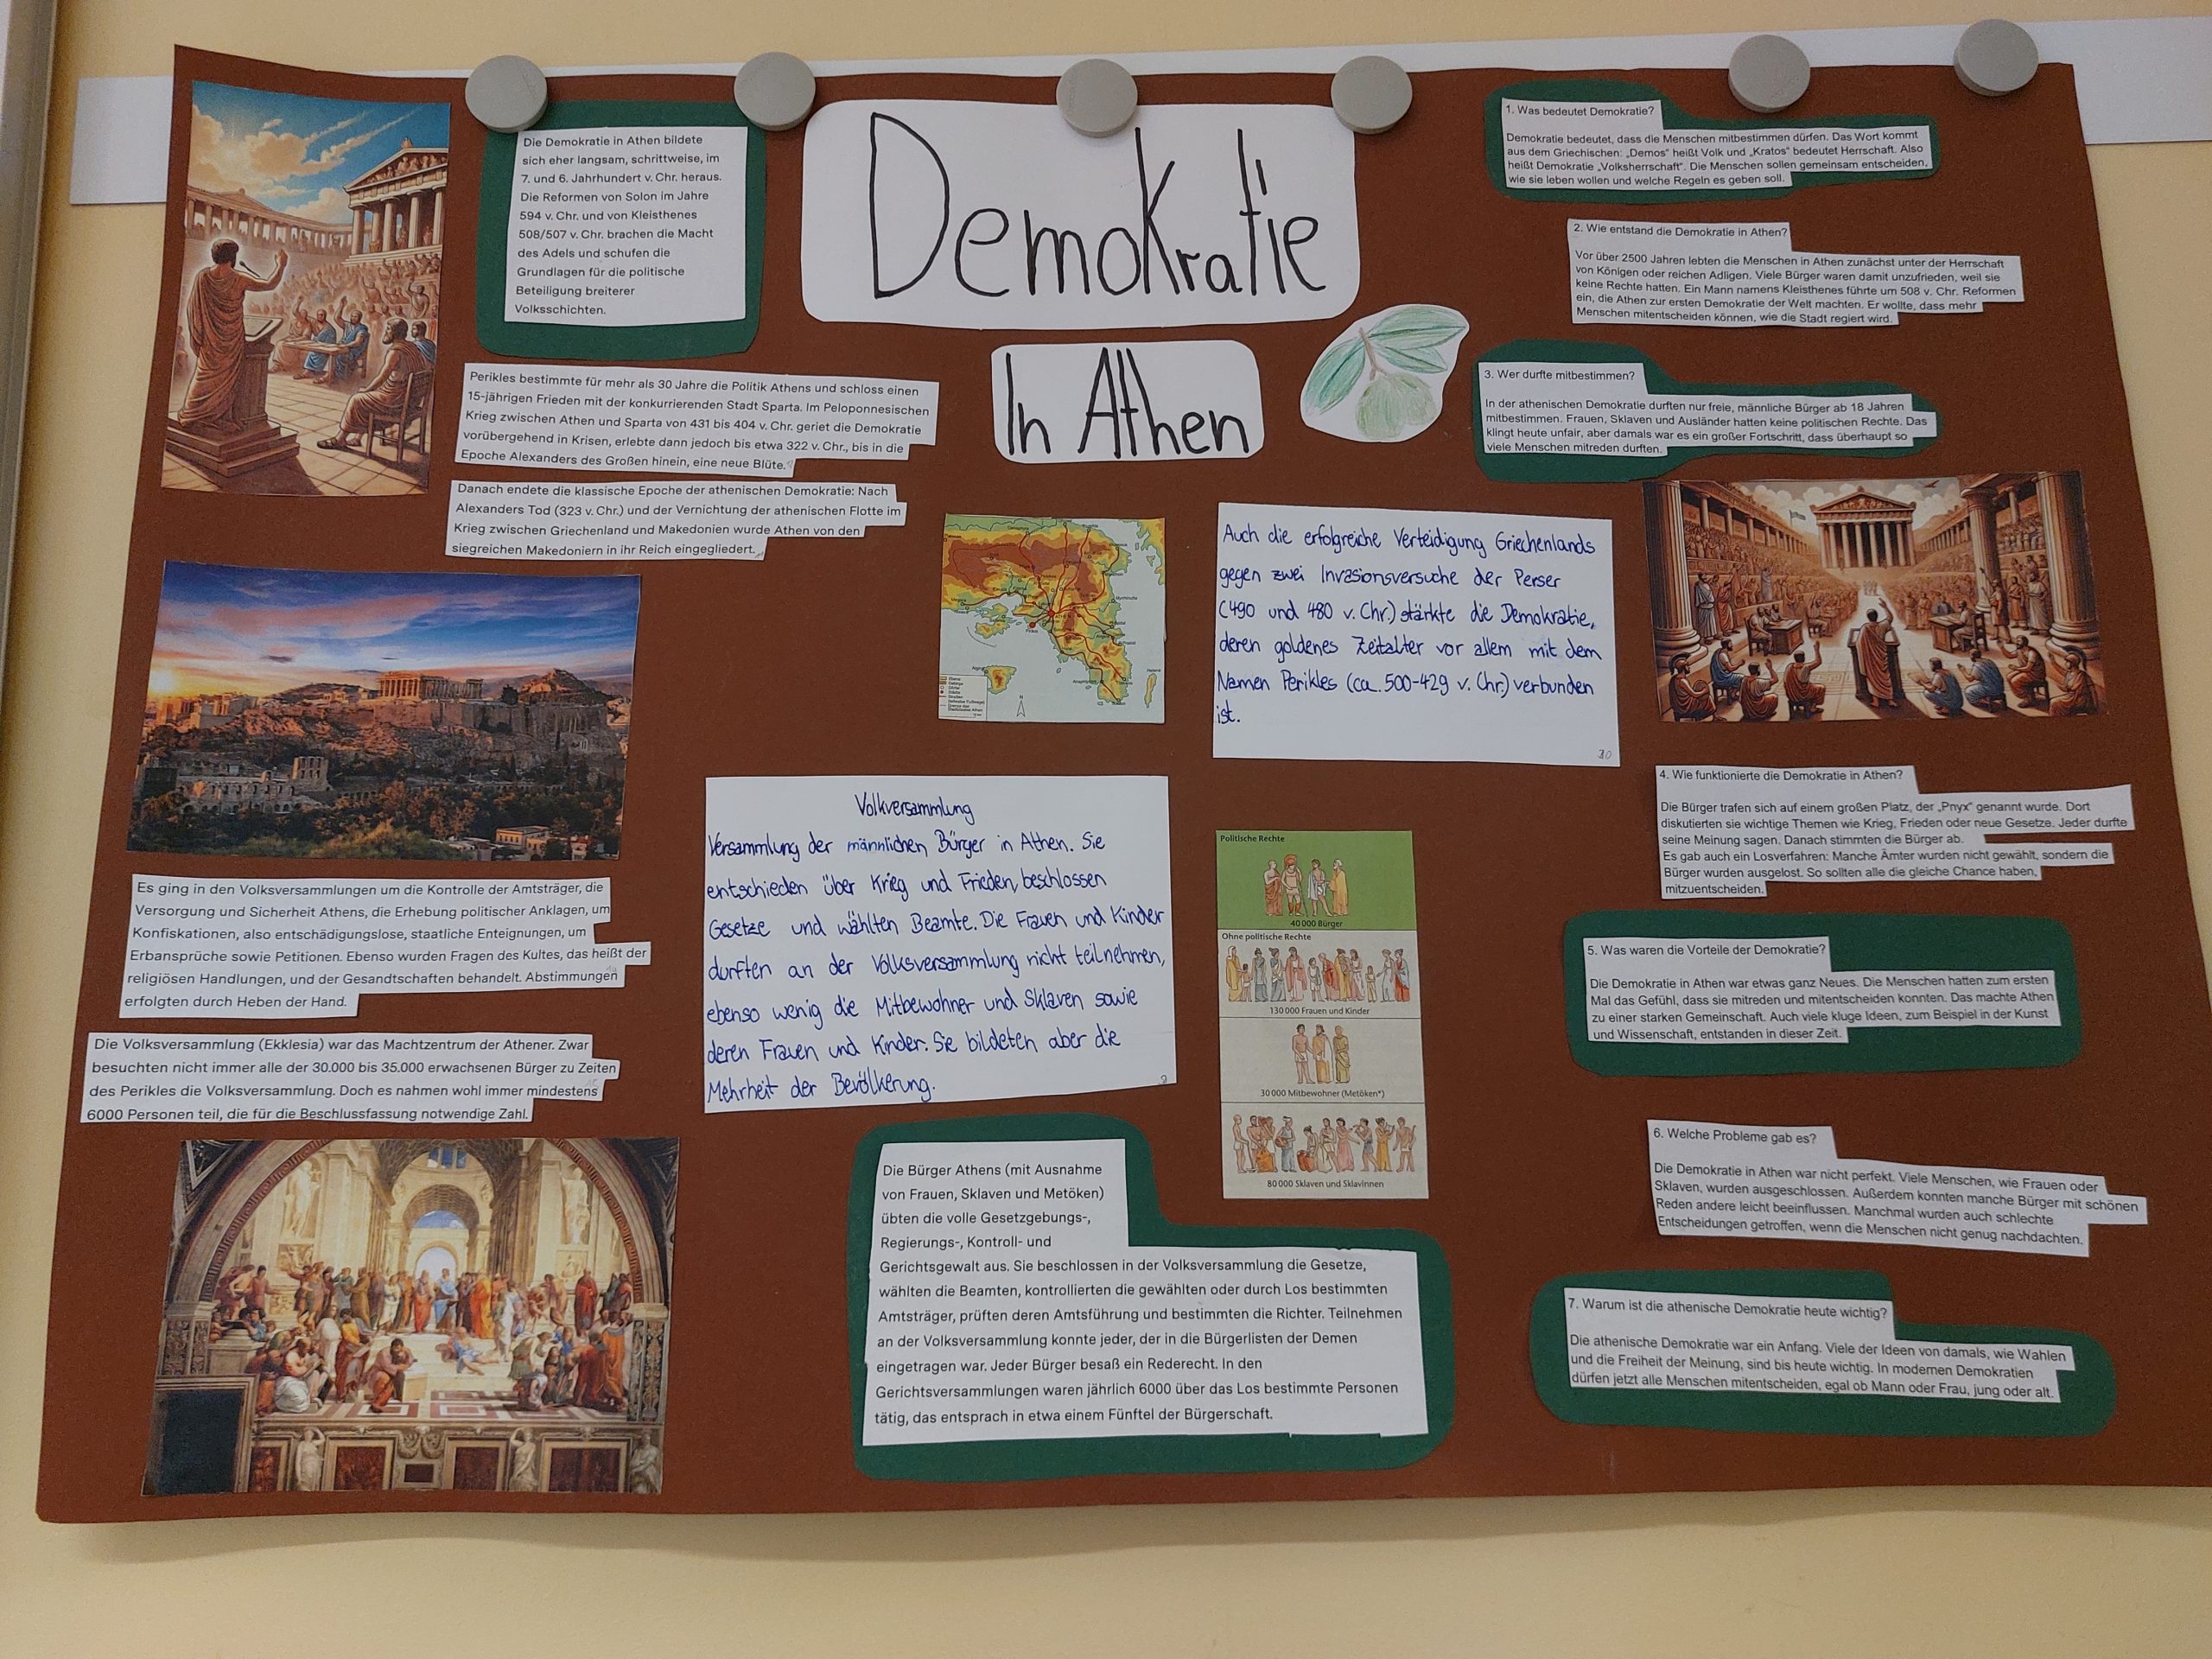 Demokratie
In Athen
Die Demokratie in Athen bildete
sich eher langsam, schrittweise, im
7. und 6. Jahrhundert v. Chr. heraus.
Die Reformen von Solon im Jahre
594 v. Chr. und von Kleisthenes
508/507 v. Chr. brachen die Macht
des Adels und schufen die
Grundlagen für die politische
Beteiligung breiterer
Volksschichten.
Perikles bestimmte für mehr als 30 Jahre die Politik Athens und schloss einen
15-jährigen Frieden mit der konkurrierenden Stadt Sparta. Im Peloponnesischen
Krieg zwischen Athen und Sparta von 431 bis 404 v. Chr. geriet die Demokratie
vorübergehend in Krisen, erlebte dann jedoch bis etwa 322 v. Chr., bis in die
Epoche Alexanders des Großen hinein, eine neue Blüte.
Danach endete die klassische Epoche der athenischen Demokratie: Nach
Alexanders Tod (323 v. Chr.) und der Vernichtung der athenischen Flotte im
Krieg zwischen Griechenland und Makedonien wurde Athen von den
siegreichen Makedoniern in ihr Reich eingegliedert.
Es ging in den Volksversammlungen um die Kontrolle der Amtsträger, die
Versorgung und Sicherheit Athens, die Erhebung politischer Anklagen, um
Konfiskationen, also entschädigungslose, staatliche Enteignungen, um
Erbansprüche sowie Petitionen. Ebenso wurden Fragen des Kultes, das heißt der
religiösen Handlungen, und der Gesandtschaften behandelt. Abstimmungen
erfolgten durch Heben der Hand.
Die Volksversammlung (Ekklesia) war das Machtzentrum der Athener. Zwar
besuchten nicht immer alle der 30.000 bis 35.000 erwachsenen Bürger zu Zeiten
des Perikles die Volksversammlung. Doch es nahmen wohl immer mindestens
6000 Personen teil, die für die Beschlussfassung notwendige Zahl.
Auch die erfolgreiche Verteidigung Griechenlands
gegen zwei Invasionsversuche der Perser
(490 und 480 v. Chr.) stärkte die Demokratie,
deren goldenes Zeitalter vor allem mit dem
Namen Perikles (ca. 500-429 v. Chr.) verbunden
ist.
Volkversammlung
Versammlung der männlichen Bürger in Athen. Sie
entschieden über Krieg und Frieden, beschlossen
Gesetze und wählten Beamte. Die Frauen und Kinder
durften an der Volksversammlung nicht teilnehmen,
ebenso wenig die Mitbewohner und Sklaven sowie
deren Frauen und Kinder. Sie bildeten aber die
Mehrheit der Bevölkerung.
Politische Rechte
40 000 Bürger
Ohne politische Rechte
130 000 Frauen und Kinder
30 000 Mitbewohner (Metöken*)
80 000 Sklaven und Sklavinnen
Die Bürger Athens (mit Ausnahme
von Frauen, Sklaven und Metöken)
übten die volle Gesetzgebungs-,
Regierungs-, Kontroll- und
Gerichtsgewalt aus. Sie beschlossen in der Volksversammlung die Gesetze,
wählten die Beamten, kontrollierten die gewählten oder durch Los bestimmten
Amtsträger, prüften deren Amtsführung und bestimmten die Richter. Teilnehmen
an der Volksversammlung konnte jeder, der in die Bürgerlisten der Demen
eingetragen war. Jeder Bürger besaß ein Rederecht. In den
Gerichtsversammlungen waren jährlich 6000 über das Los bestimmte Personen
tätig, das entsprach in etwa einem Fünftel der Bürgerschaft.
1. Was bedeutet Demokratie?
Demokratie bedeutet, dass die Menschen mitbestimmen dürfen. Das Wort kommt
aus dem Griechischen: „Demos“ heißt Volk und „Kratos“ bedeutet Herrschaft. Also
heißt Demokratie „Volksherrschaft“. Die Menschen sollen gemeinsam entscheiden,
wie sie leben wollen und welche Regeln es geben soll.
2. Wie entstand die Demokratie in Athen?
Vor über 2500 Jahren lebten die Menschen in Athen zunächst unter der Herrschaft
von Königen oder reichen Adligen. Viele Bürger waren damit unzufrieden, weil sie
keine Rechte hatten. Ein Mann namens Kleisthenes führte um 508 v. Chr. Reformen
ein, die Athen zur ersten Demokratie der Welt machten. Er wollte, dass mehr
Menschen mitentscheiden können, wie die Stadt regiert wird.
3. Wer durfte mitbestimmen?
In der athenischen Demokratie durften nur freie, männliche Bürger ab 18 Jahren
mitbestimmen. Frauen, Sklaven und Ausländer hatten keine politischen Rechte. Das
klingt heute unfair, aber damals war es ein großer Fortschritt, dass überhaupt so
viele Menschen mitreden durften.
4. Wie funktionierte die Demokratie in Athen?
Die Bürger trafen sich auf einem großen Platz, der „Pnyx“ genannt wurde. Dort
diskutierten sie wichtige Themen wie Krieg, Frieden oder neue Gesetze. Jeder durfte
seine Meinung sagen. Danach stimmten die Bürger ab.
Es gab auch ein Losverfahren: Manche Ämter wurden nicht gewählt, sondern die
Bürger wurden ausgelost. So sollten alle die gleiche Chance haben,
mitzuentscheiden.
5. Was waren die Vorteile der Demokratie?
Die Demokratie in Athen war etwas ganz Neues. Die Menschen hatten zum ersten
Mal das Gefühl, dass sie mitreden und mitentscheiden konnten. Das machte Athen
zu einer starken Gemeinschaft. Auch viele kluge Ideen, zum Beispiel in der Kunst
und Wissenschaft, entstanden in dieser Zeit.
6. Welche Probleme gab es?
Die Demokratie in Athen war nicht perfekt. Viele Menschen, wie Frauen oder
Sklaven, wurden ausgeschlossen. Außerdem konnten manche Bürger mit schönen
Reden andere leicht beeinflussen. Manchmal wurden auch schlechte
Entscheidungen getroffen, wenn die Menschen nicht genug nachdachten.
7. Warum ist die athenische Demokratie heute wichtig?
Die athenische Demokratie war ein Anfang. Viele der Ideen von damals, wie Wahlen
und die Freiheit der Meinung, sind bis heute wichtig. In modernen Demokratien
dürfen jetzt alle Menschen mitentscheiden, egal ob Mann oder Frau, jung oder alt.